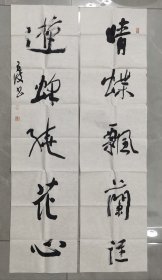 晴蝶飄蘭逕
遊蜂绕花心